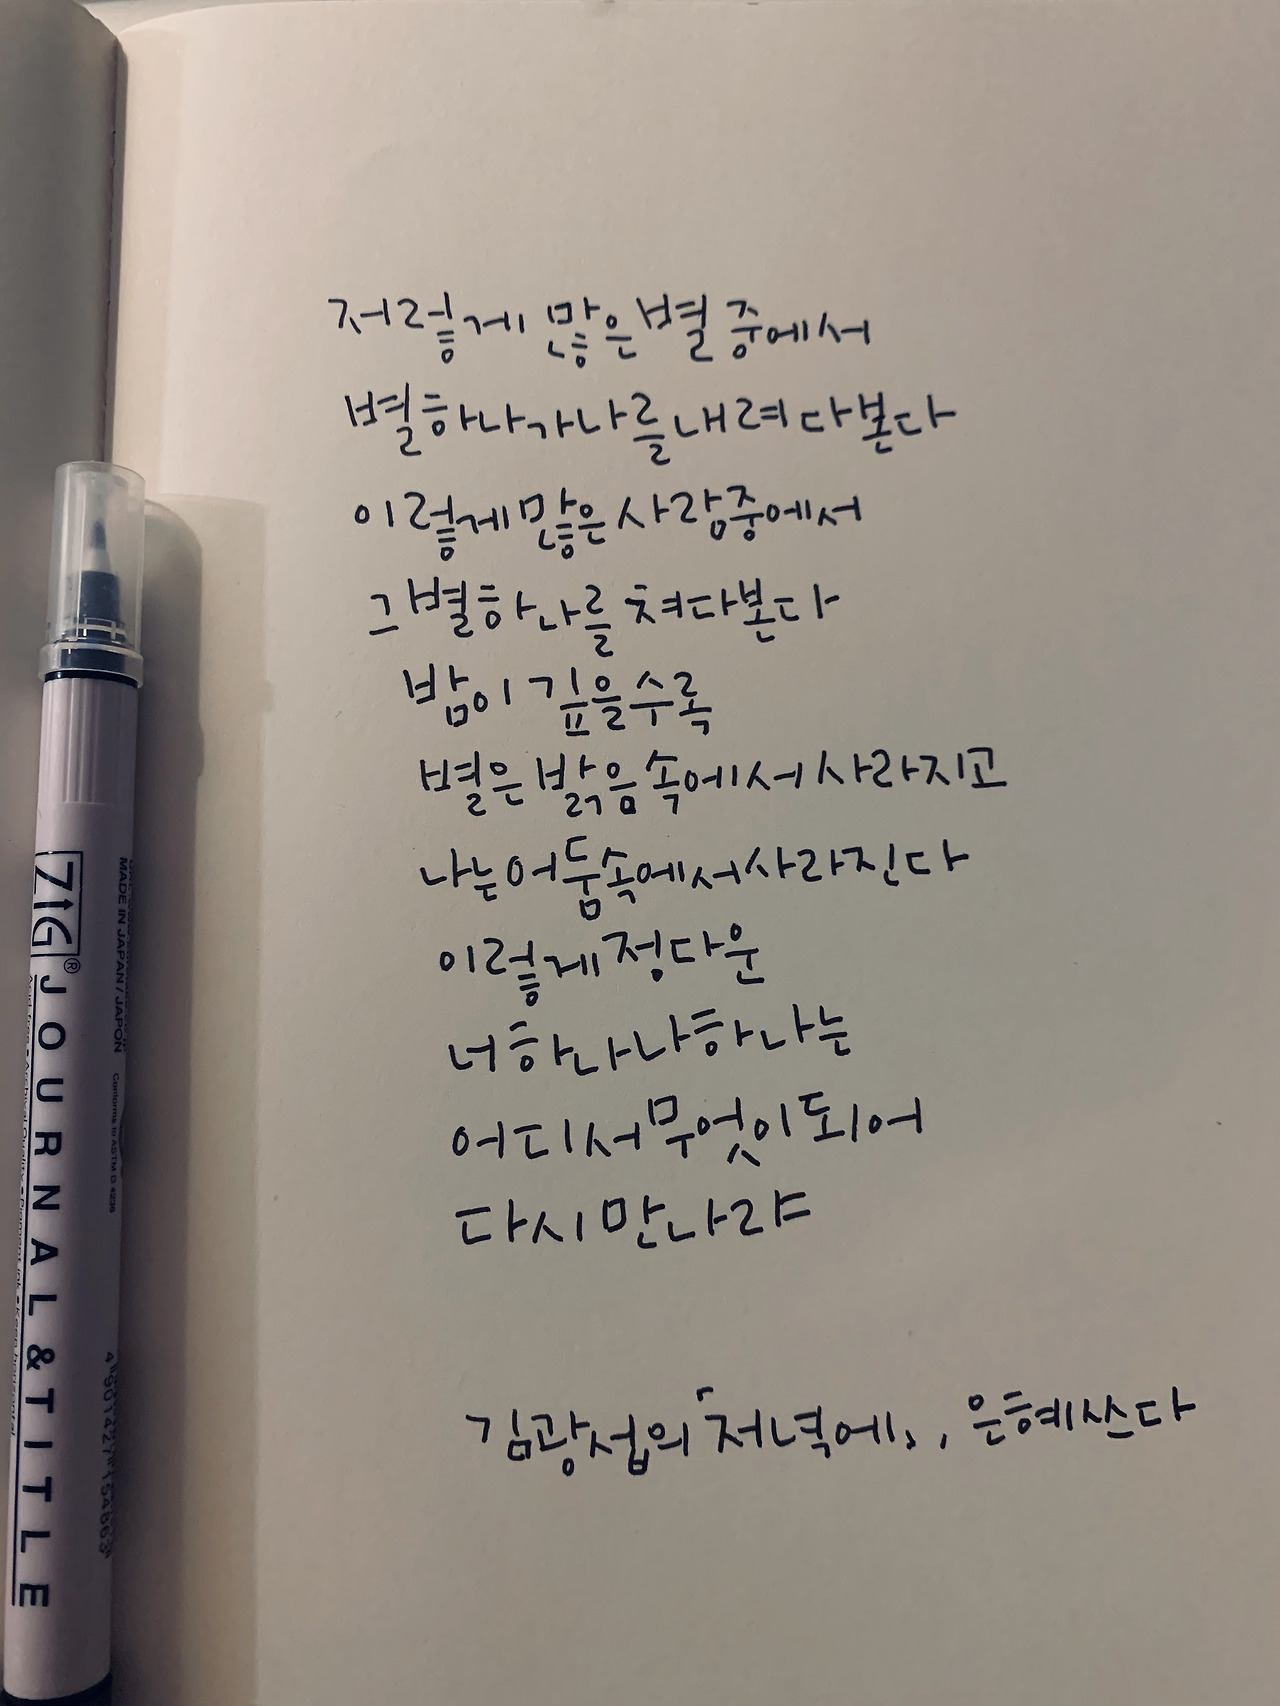 저렇게 많은 별 중에서
별 하나가 나를 내려다본다
이렇게 많은 사람 중에서
그 별 하나를 쳐다본다
밤이 깊을수록
별은 밝음 속에서 사라지고
나는 어둠 속에서 사라진다
이렇게 정다운
너 하나 나 하나는
어디서 무엇이 되어
다시 만나랴
김광섭의 「저녁에」, 은혜쓰다
ZIG® JOURNAL & TITLE
MADE IN JAPAN / JAPON
Conforms to ASTM D 4236
4 901427 154863